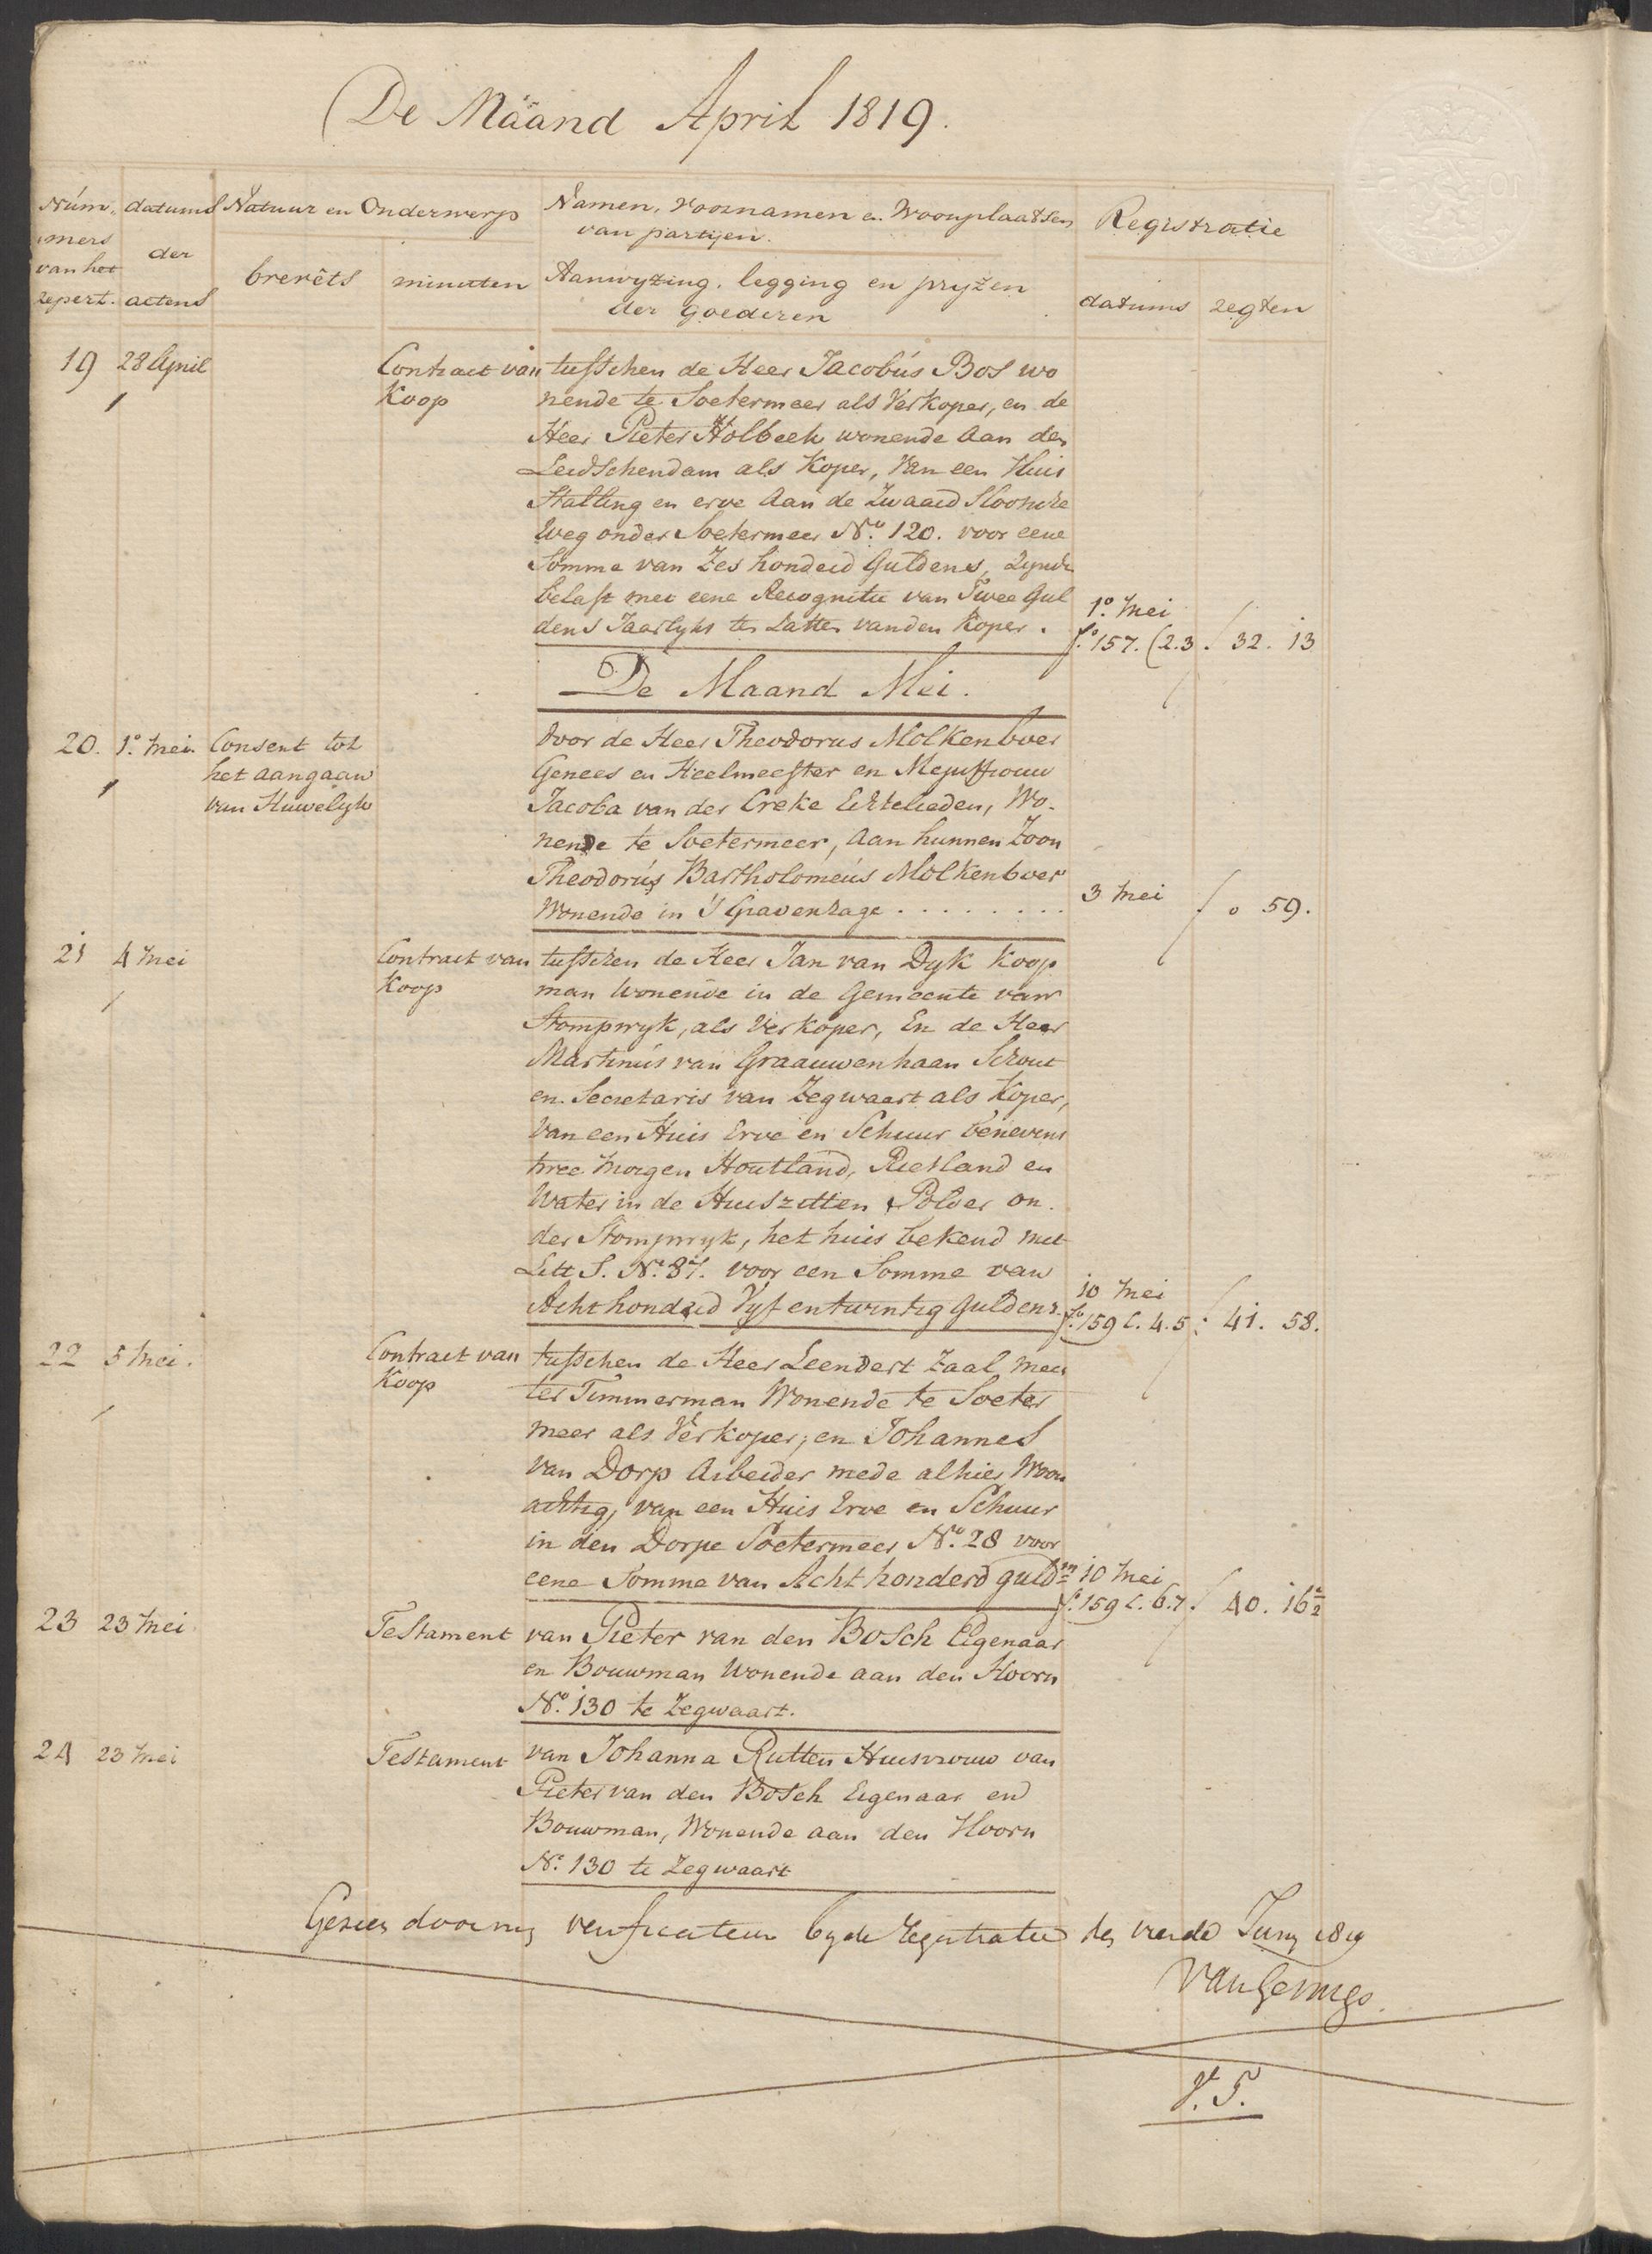 De Maand April 1819.
Núm- mers van het repert.
datums der actens
Natuur en Onderwerp
brevêts
minuten
Namen, voornamen en Woonplaatsen
van partijen.
Aanwyzing, legging en pryzen
der goederen
Registratie
datums
regten
19 28 April
Contract van Koop
tusschen de Heer Jacobús Bos wo
nende te Soetermeer als Verkoper, en de
Heer Pieter Holbeek wonende aan den
Leidschendam als Koper, Van een Huis
Stalling en erve aan de Zwaard Sloonsche
Weg onder Soetermeer No. 120. voor eene
Somme van Zes honderd Guldens, Zynde
belast met eene Recognitie van Twee Gul
dens Jaarlyks ten Laste vanden Koper.
1o. Mei
fo. 157. C 2.3. f 32. 13
De Maand Mei.
20. 1o. Mei.
Consent tot
het aangaan
van Huwelyk
door de Heer Theodorus Molkenboer
Genees en Heelmeester en Mejuffrouw
Jacoba van der Creke Echtelieden, Wo-
nende te Soetermeer, aan hunnen Zoon
Theodorús Bartholomeús Molkenboer
Wonende in 's Gravenhage . . . . . . . .
3 Mei f 0 59.
21 4 Mei
Contract van Koop
tusschen de Heer Jan van Dyk Koop
man Wonende in de Gemeente van
Stompwyk, als Verkoper, En de Heer
Martinús van Graauwenhaan Schout
en Secretaris van Zegwaart als Koper,
van een Huis Erve en Schuur benevens
twee Morgen Houtland, Rietland en
Water in de Huiszitten Polder on-
der Stompwyk, het huis bekend met
Litt S. No. 37. voor een Somme van
Achthonderd Vyf entwintig Guldens.
10 Mei
fo. 159 C. 4.5 f 41. 58.
22 5 Mei.
Contract van Koop
tusschen de Heer Leendert Zaal mees
ter Timmerman Wonende te Soeter
meer als Verkoper, en Johannes
van Dorp Arbeider mede alhier Woon
achtig, van een Huis Erve en Schuur
in den Dorpe Soetermeer No. 28 voor
eene Somme van Acht honderd guldn
10 Mei
fo. 159 C. 6.7. f 40. 16½
23 23 Mei
Testament
van Pieter van den Bosch Eigenaar
en Bouwman Wonende aan den Hoorn
No. 130 te Zegwaart.
24 23 Mei
Testament
van Johanna Rutten Huisvrouw van
Pieter van den Bosch Eigenaar en
Bouwman, Wonende aan den Hoorn
No. 130 te Zegwaart
Gezien door my verificateur by de Registratie den vierde Juny 1819
V. T.